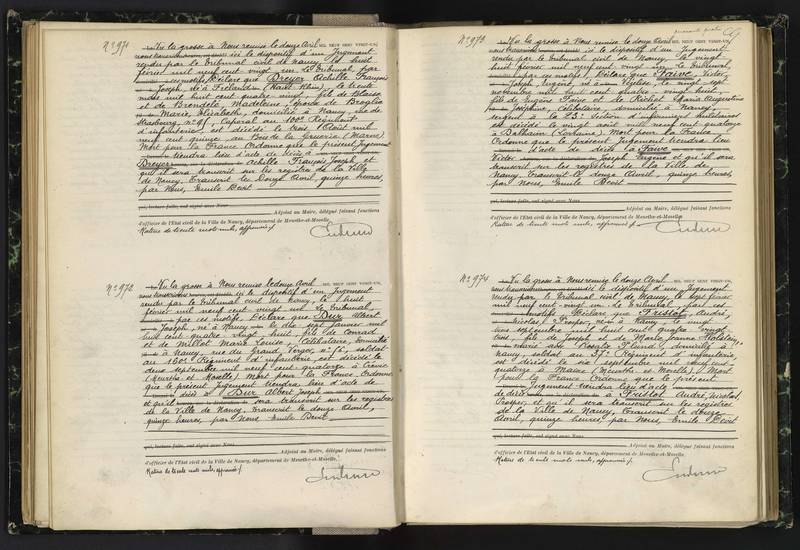 N° 971
Vu la grosse à Nous remise le douze Avril MIL NEUF CENT VINGT-UN,
nous transcrivons ici le dispositif d'un Jugement
rendu par le Tribunal civil de Nancy, le huit
février mil neuf cent vingt un. Le Tribunal par
ces motifs, Déclare que Dreyer Achille François
Joseph, né à (Haut Rhin) le trente
mil huit cent quatre vingt, fils de Blaise
et de Madeleine, époux de Broglia
Marie Elizabeth, domicilié à Nancy, rue de
Strasbourg, n° 91, Caporal au Régiment
d'infanterie, est décédé le trois Août mil
neuf cent quinze, au Bois de la Gruerie (Marne)
Mort pour la France Ordonne que le présent Jugement
tiendra lieu d'acte de décès à
Dreyer Achille François Joseph et
qu'il sera transcrit sur les registres de la Ville
de Nancy. Transcrit le Douze Avril, quinze heures,
par Nous, Emile Devit
qui, lecture faite, ont signé avec Nous
Adjoint au Maire, délégué faisant fonctions
d'officier de l'Etat civil de la Ville de Nancy, département de Meurthe-et-Moselle.
Rature de trente mots nuls, approuvée
N° 972
Vu la grosse à Nous remise le douze Avril MIL NEUF CENT VINGT-UN,
nous transcrivons ici le dispositif d'un Jugement
rendu par le Tribunal civil de Nancy, le huit
février mil neuf cent vingt un. Le Tribunal
par ces motifs, Déclare que Dur Albert
Joseph, né à Nancy le dix sept janvier mil
huit cent quatre vingt huit, fils de Conrad
et de Millot Marie Louise, Célibataire, domicilié
à Nancy, rue du Grand Verger, soldat
au 160e Régiment d'infanterie, est décédé le
deux septembre mil neuf cent quatorze à
(Meurthe et Moselle) Mort pour la France. Ordonne
que le présent Jugement tiendra lieu d'acte de
décès à Dur Albert Joseph
et qu'il sera transcrit sur les registres
de la Ville de Nancy, Transcrit le douze Avril,
quinze heures, par Nous Emile Devit
qui, lecture faite, ont signé avec Nous
Adjoint au Maire, délégué faisant fonctions
d'officier de l'Etat civil de la Ville de Nancy, département de Meurthe-et-Moselle.
Rature de trente mots nuls, approuvée
N° 973
Vu la grosse à Nous remise le douze Avril MIL NEUF CENT VINGT-UN,
nous transcrivons ici le dispositif d'un Jugement
rendu par le Tribunal civil de Nancy, le vingt
huit février mil neuf cent vingt un. Le Tribunal
par ces motifs, Déclare que Faive, Victor,
Joseph, Eugène, né à le vingt sept
novembre mil huit cent quatre vingt huit,
fils de Eugène Faive et de Richet Maria Augustine
Joséphine, Célibataire, domicilié à Nancy,
sergent à la 23e Section d'infirmiers militaires
est décédé le vingt août mil neuf cent quatorze
à Dalhain (Lorraine). Mort pour la France.
Ordonne que le présent Jugement tiendra lieu
d'acte de décès à Faive
Victor Joseph Eugène et qu'il sera
transcrit sur les registres de la Ville de
Nancy, Transcrit le douze Avril, quinze heures,
par Nous, Emile Devit
qui, lecture faite, ont signé avec Nous
Adjoint au Maire, délégué faisant fonctions
d'officier de l'Etat civil de la Ville de Nancy, département de Meurthe-et-Moselle.
Rature de trente mots nuls, approuvée
N° 974
Vu la grosse à Nous remise le douze Avril MIL NEUF CENT VINGT-UN,
nous transcrivons ici le dispositif d'un Jugement
rendu par le Tribunal civil de Nancy, le sept février
mil neuf cent vingt un. Le Tribunal, par ces
motifs, Déclare que Fristot, André,
Nicolas, Prosper, né à Nancy, le vingt
trois septembre mil huit cent quatre vingt
trois, fils de Joseph et de Marie Jeanne
marié avec domicilié à
Nancy, soldat au 37e Régiment d'infanterie,
est décédé le septembre mil neuf cent
quatorze à (Meurthe et Moselle). Mort
pour la France. Ordonne que le présent
Jugement tiendra lieu d'acte
de décès à Fristot André, Nicolas,
Prosper, et qu'il sera transcrit sur les registres
de la Ville de Nancy, Transcrit le douze
Avril, quinze heures, par Nous, Emile Devit
qui, lecture faite, ont signé avec Nous
Adjoint au Maire, délégué faisant fonctions
d'officier de l'Etat civil de la Ville de Nancy, département de Meurthe-et-Moselle.
Rature de trente mots nuls, approuvée